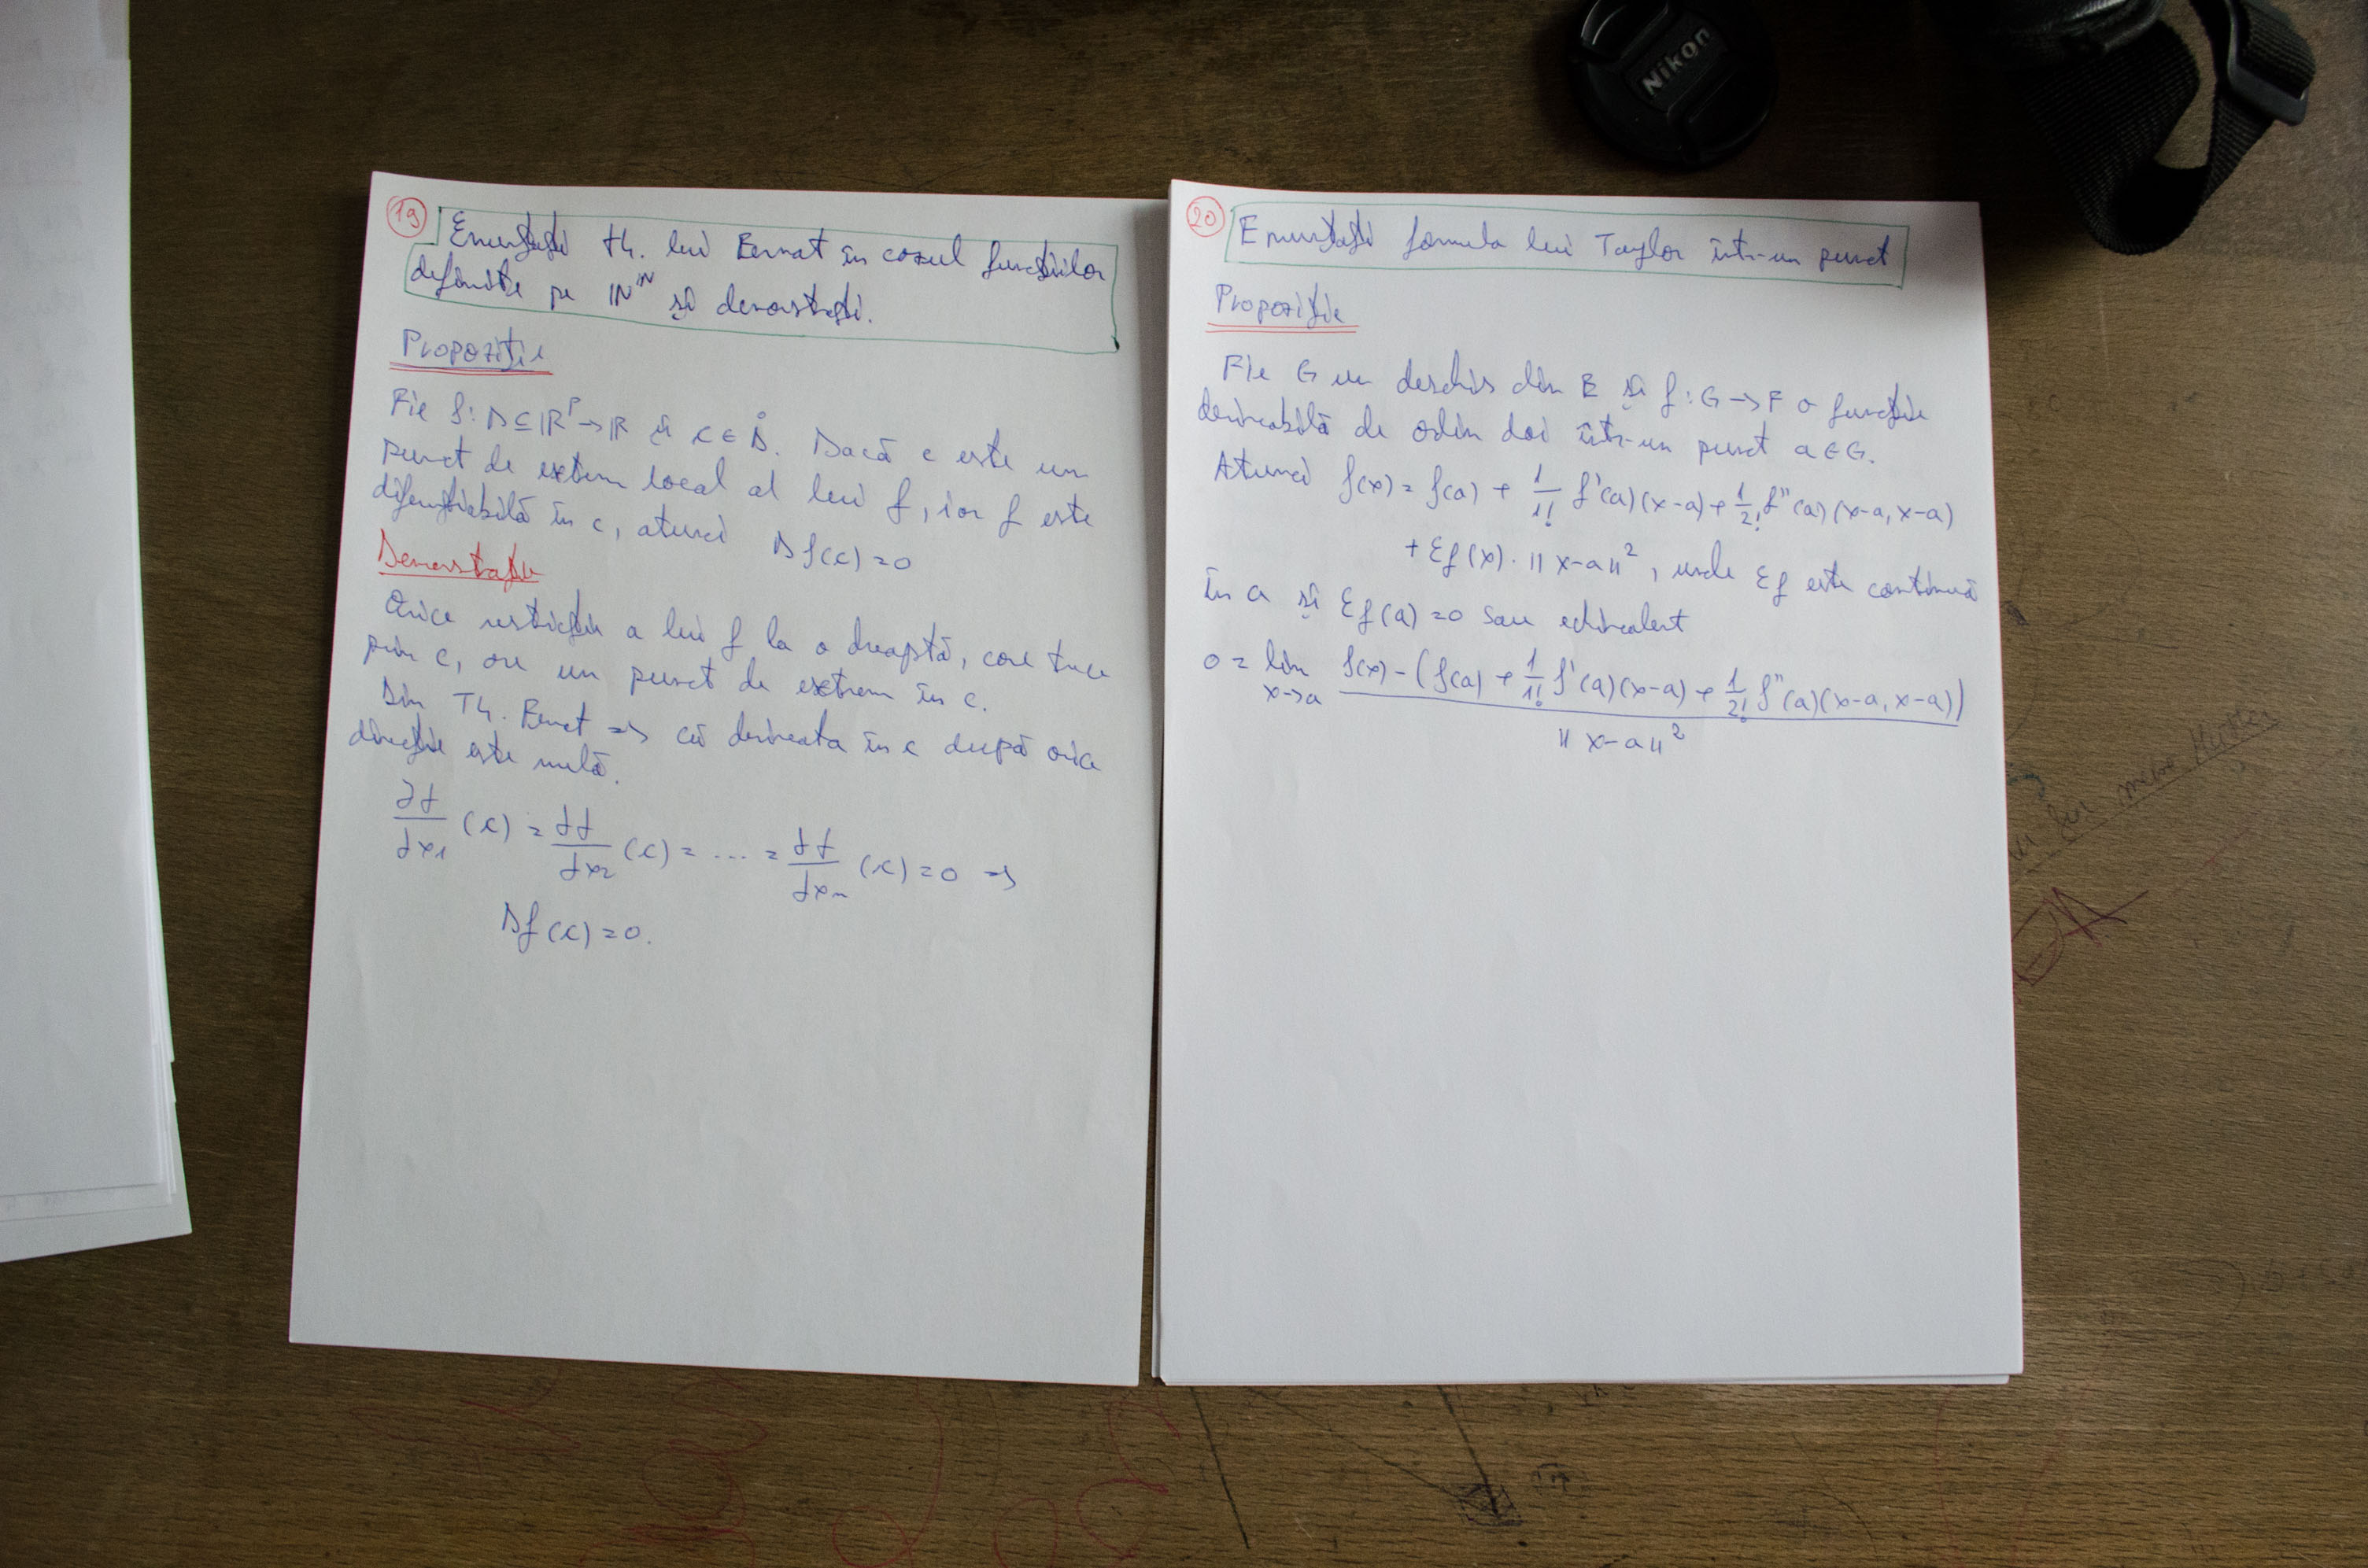 19 Enunțați th. lui Fermat în cazul funcțiilor
definite pe ℝⁿ și demonstrați.
Propoziție
Fie f: D⊆ℝᵖ→ℝ și c∈D̊. Dacă c este un
punct de extrem local al lui f, iar f este
diferențiabilă în c, atunci Df(c)=0
Demonstrație
Orice restricție a lui f la o dreaptă, care trece
prin c, are un punct de extrem în c.
Din Th. Fermat => că derivata în c după orice
direcție este nulă.
∂f/∂x₁ (c) = ∂f/∂x₂ (c) = ... = ∂f/∂xₙ (c) = 0 =>
Df(c)=0.
20 Enunțați formula lui Taylor într-un punct
Propoziție
Fie G un deschis din E și f: G→F o funcție
derivabilă de ordin doi într-un punct a∈G.
Atunci f(x) = f(a) + 1/1! f'(a)(x-a) + 1/2! f''(a)(x-a, x-a)
+ εf(x)·||x-a||², unde εf este continuă
în a și εf(a)=0 sau echivalent
0 = lim x→a f(x) - (f(a) + 1/1! f'(a)(x-a) + 1/2! f''(a)(x-a, x-a)) / ||x-a||²
Nikon